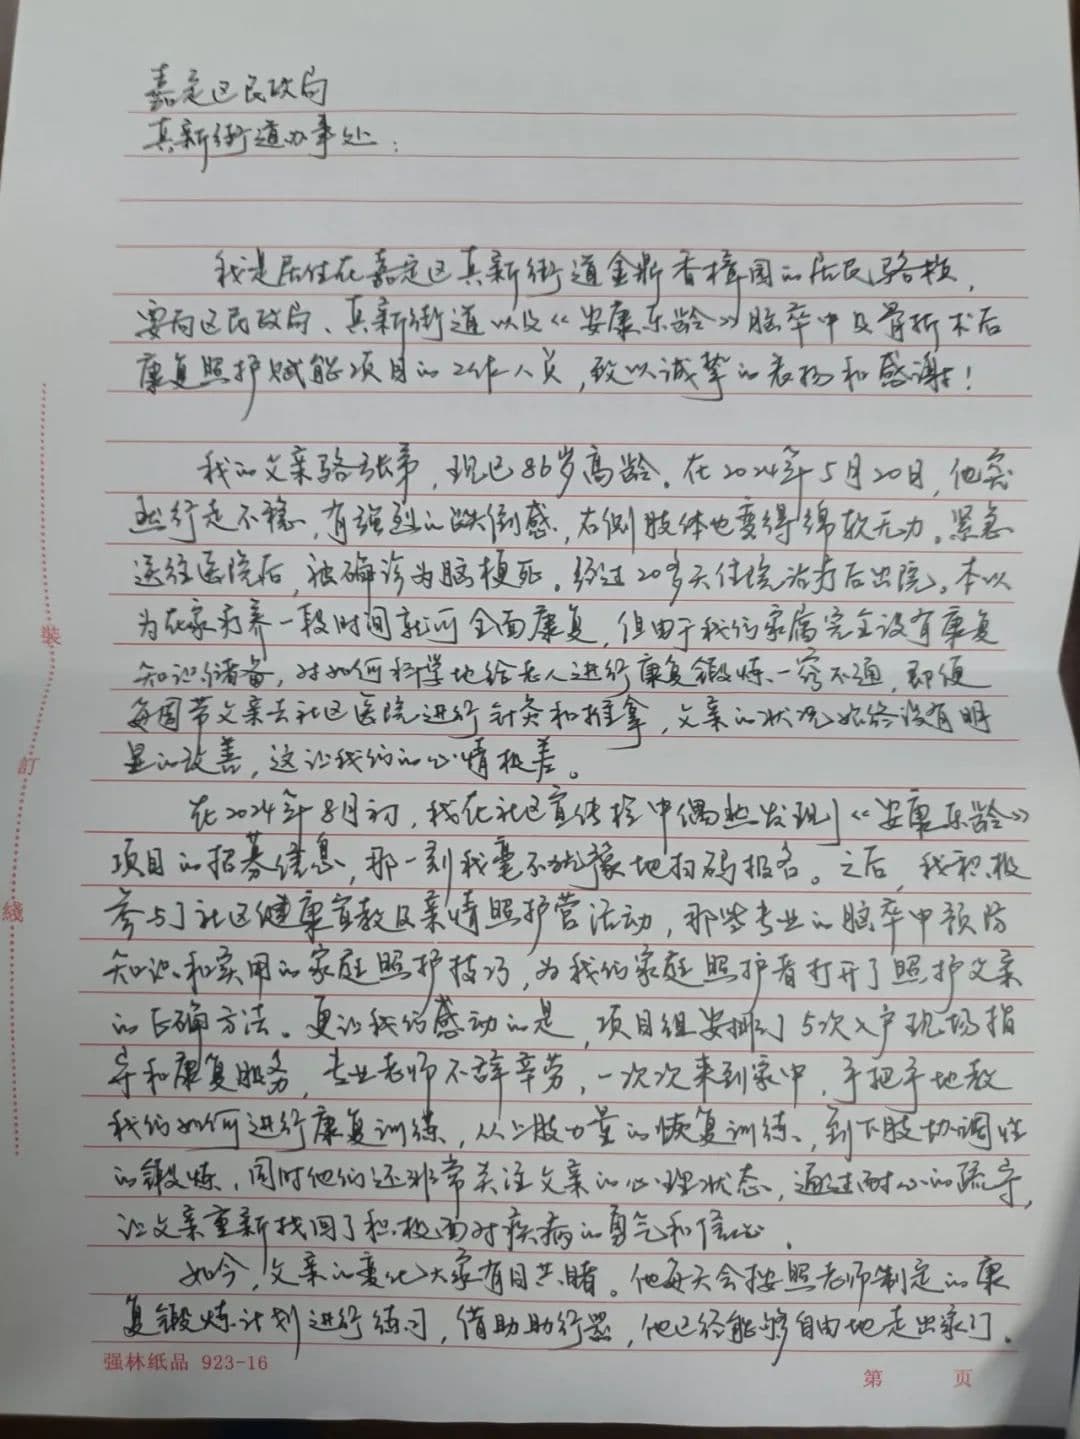 嘉定区民政局
真新街道办事处：
我是居住在嘉定区真新街道金鼎香樟园的居民骆枝，
要向区民政局、真新街道以及《安康乐龄》脑卒中及骨折术后
康复照护赋能项目的工作人员，致以诚挚的表扬和感谢！
我的父亲骆张弟，现已86岁高龄。在2024年5月20日，他突
然行走不稳，有强烈的跌倒感，右侧肢体也变得绵软无力。紧急
送往医院后，被确诊为脑梗死。经过20多天住院治疗后出院。本以
为在家疗养一段时间就可全面康复，但由于我们家属完全没有康复
知识储备，对如何科学地给老人进行康复锻炼一窍不通，即便
每周带父亲去社区医院进行针灸和推拿，父亲的状况始终没有明
显的改善，这让我们的心情极差。
在2024年8月初，我在社区宣传栏中偶然发现了《安康乐龄》
项目的招募信息，那一刻我毫不犹豫地扫码报名。之后，我积极
参与了社区健康宣教及亲情照护营活动，那些专业的脑卒中预防
知识和实用的家庭照护技巧，为我们家庭照护者打开了照护父亲
的正确方法。更让我们感动的是，项目组安排了5次入户现场指
导和康复服务，专业老师不辞辛劳，一次次来到家中，手把手地教
我们如何进行康复训练，从上肢力量的恢复训练，到下肢协调性
的锻炼，同时他们还非常关注父亲的心理状态，通过耐心的疏导，
让父亲重新找回了积极面对疾病的勇气和信心。
如今，父亲的变化大家有目共睹。他每天会按照老师制定的康
复锻炼计划进行练习，借助助行器，他已经能够自由地走出家门。
裝
訂
綫
强林纸品 923-16
第 页